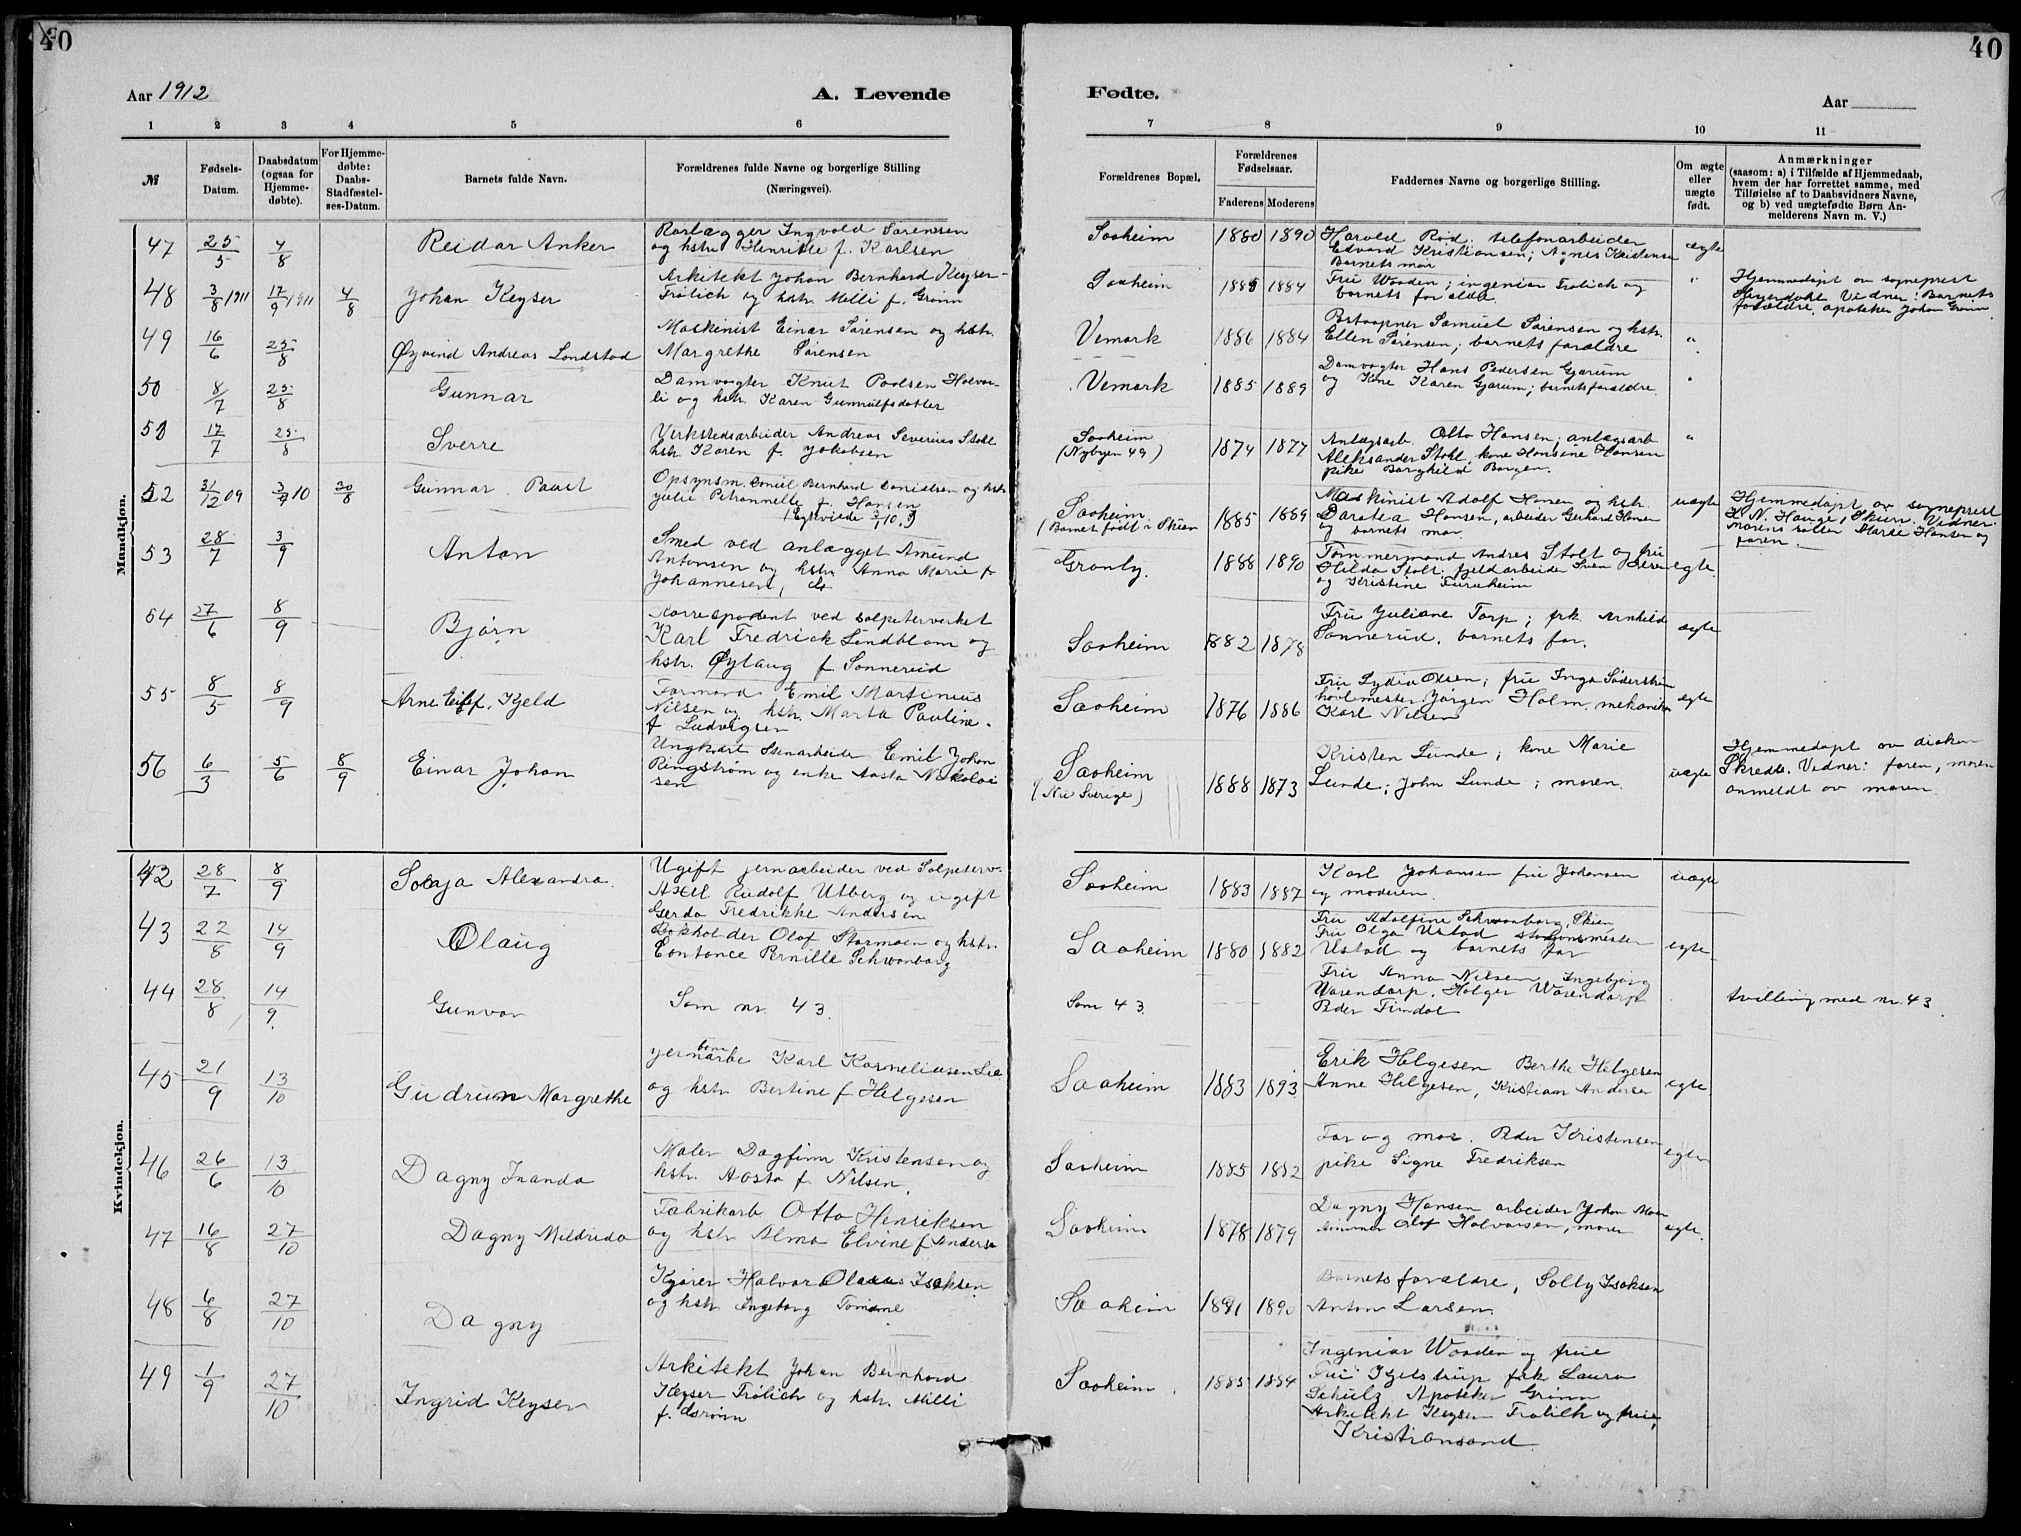 40
40
Aar 1912
A. Levende
Fødte.
Aar
1 2 3 4 5 6 7 8 9 10 11
№
Fødsels-
Datum.
Daabsdatum
(ogsaa for
Hjemme-
døbte).
For Hjemme-
døbte:
Daabs-
Stadfæstel-
ses-Datum.
Barnets fulde Navn.
Forældrenes fulde Navne og borgerlige Stilling
(Næringsvei).
Forældrenes Bopæl.
Forældrenes
Fødselsaar.
Faderens Moderens
Faddernes Navne og borgerlige Stilling.
Om ægte
eller
uægte
født.
Anmærkninger
(saasom: a) i Tilfælde af Hjemmedaab,
hvem der har forrettet samme, med
Tilføielse af to Daabsvidners Navne,
og b) ved uægtefødte Børn An-
melderens Navn m. V.)
Mandkjøn.
47 25/5 4/8 Reidar Anker
Rørlægger Ingvald Sørensen
og hstr. Henrikke f. Karlsen
Saaheim 1880 1890
Harald Rød; telefonarbeider
Edvard Kristiansen; Agnes Kristensen
Barnets mor
ægte
48 3/8 1911 17/9 1911 4/8 Johan Keyser
Arkitekt Johan Bernhard Keyser-
Frølich og hstr. Milli f. Grønn
Saaheim 1885 1884
Fru Waaden; ingeniør Frølich og
barnets forældre.
"
Hjemmedøpt av sogneprest
Vidner: Barnets
forældre, apoteker Johan Grønn
49 16/6 25/8 Øyvind Andreas Londstad
Maskinist Einar Sørensen og hstr.
Margrethe Sørensen
Vemork 1886 1884
Postaapner Samuel Sørensen og hstr.
Ellen Sørensen; barnets forældre
"
50 8/7 25/8 Gunnar
Damvogter Knut Paalsen Halvor-
li og hstr. Karen Gunnulfsdatter
Vemork 1885 1889
Damvogter Hans Pedersen Gjærum
og kone Karen Gjærum; barnets forældre.
"
51 17/7 25/8 Sverre
Verkstedsarbeider Andreas Severius Stoll
hstr. Karen f. Jakobsen
Saaheim
(Nybyen 49)
1874 1877
Anlægsarb. Otto Hansen; anlægsarb
Aleksander Stoll, kone Hansine Hansen
pike Borghild Borgen.
"
52 31/12 09 3/7 10 30/8 Gunnar Paast
Opsynsm. Daniel Bernhard Danielsen og hstr
Julie Petronnelle f. Hansen
(Egteviede 3/1 10.)
Saaheim
(Barnet født i Skien
1885 1889
Maskinist Adolf Hansen og hstr.
Daratea Hansen, arbeider Gerhard Hansen
og barnets mor.
uægte
Hjemmedøpt av sogneprest
K. N. Hauge, Skien. Vidner:
morens søster Marie Hansen og
faren.
53 28/7 3/9 Anton
Smed ved anlægget Amund
Antonsen og hstr. Anna Marie f.
Johannesen,
Grønly. 1888 1890
Tømmermand Andres Stolt og fru
Hilda Stolt; fjeldarbeider Sven Olsen
og Kristine Furuheim
egte.
54 27/6 8/9 Bjørn
Korrespondent ved salpeterverket
Karl Fredrick Lindblom og
hstr. Øylaug f. Sønnerud
Saaheim 1882 1878
Fru Juliane Torp; frk. Arnhild
Sønnerud. barnets far.
ægte
55 8/5 8/9 Arne Leif Kjeld
Formand Emil Martinius
Nilsen og hstr. Marta Pauline
f. Ludvigsen
Saaheim 1876 1886
Fru Lydia Olsen; fru Inga Söderstrøm
Jørgen Holm. mekaniker
Karl Nilsen
ægte
56 6/3 5/6 8/9 Einar Johan
Ungkarl Stenarbeider Emil Johan
Ringstrøm og enke Aasta Nikolai
sen
Saaheim
(Nu Sverige)
1888 1873
Kristen Lunde; kone Marie
Lunde; John Lunde; moren.
uægte
Hjemmedøpt av diakon
Skrede. Vidner: faren, moren
anmeldt av moren.
Kvindekjøn.
42 28/7 8/9 Solaja Alexandra.
Ugift jernarbeider ved Salpeterv.
Axel Rudolf Utberg og ugift
Gerda Fredrikke Andersen
Saaheim 1883 1887
Karl Johansen fru Johansen
og moderen
uægte
43 22/8 14/9 Olaug
Bokholder Olaf Stormoen og hstr.
Constance Pernille Schwanborg
Saaheim 1880 1882
Fru Adolfine Schwanborg, Skien
Fru Olga Ustad stationsmester
Ustad og barnets far
egte
44 28/8 14/9 Gunvor
Som nr. 43.
Som 43. — —
Fru Anna Nilsen, Ingebjørg
Warendorp. Holger Warendorp
Peder Timdal
tvilling med nr. 43
45 21/9 13/10 Gudrun Margrethe
jernbanearbe Karl Korneliusen Lie
og hstr. Bertine f Helgesen
Saaheim 1883 1893
Erik Helgesen Berthe Helgesen
Anne Helgesen, Kristian Anderse
egte
46 26/6 13/10 Dagny Iranda
Maler Dagfinn Kristensen og
hstr. Aasta f. Nilsen.
Saaheim 1885 1882
Far og mor. Peder Kristensen
pike Signe Fredriksen
egte
47 16/8 27/10 Dagny Mildrida
Fabrikarb Otto Henriksen
og hstr Alma Elvine f Anderse
Saaheim 1878 1879
Dagny Hansen arbeider Johan Moen
Olaf Halvorsen, moren
egte.
48 6/8 27/10 Dagny
Kjører Halvor Olaus Isaksen
og hstr Ingeborg Tomine
Saaheim 1891 1890
Barnets forældre, Solly Isaksen
Anton Larsen.
49 1/9 27/10 Ingrid Keyser
Arkitekt Johan Bernhard
Keyser Frölich og hstr. Milli
f. Grønn
Saaheim. 1885 1884
Ingeniør Waaden og frue
Fru Kjelstrup frk Laura
Schulz Apoteker Grønn
Arkitekt Keyser Frølich og frue,
Kristiansand